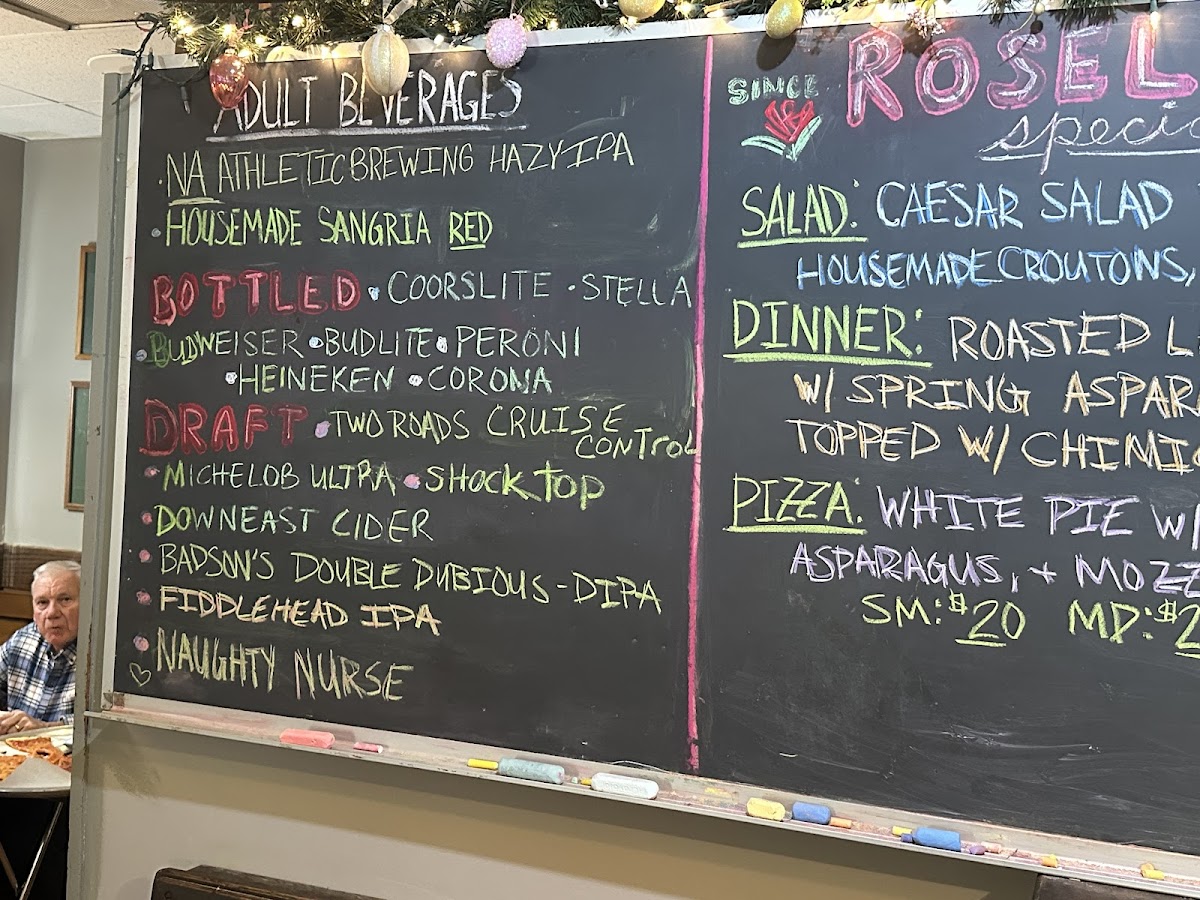 ADULT BEVERAGES
• NA ATHLETIC BREWING HAZY IPA
• HOUSEMADE SANGRIA RED
BOTTLED • COORSLITE • STELLA
• BUDWEISER • BUDLITE • PERONI
• HEINEKEN • CORONA
DRAFT • TWO ROADS CRUISE
CONTROL
• MICHELOB ULTRA • SHOCK TOP
• DOWNEAST CIDER
• BADSON'S DOUBLE DUBIOUS - DIPA
• FIDDLEHEAD IPA
• NAUGHTY NURSE
SINCE
ROSEL
speci
SALAD: CAESAR SALAD
HOUSEMADE CROUTONS,
DINNER: ROASTED L
W/ SPRING ASPAR
TOPPED W/ CHIMIC
PIZZA: WHITE PIE W/
ASPARAGUS, + MOZZ
SM: $20 MD: $2